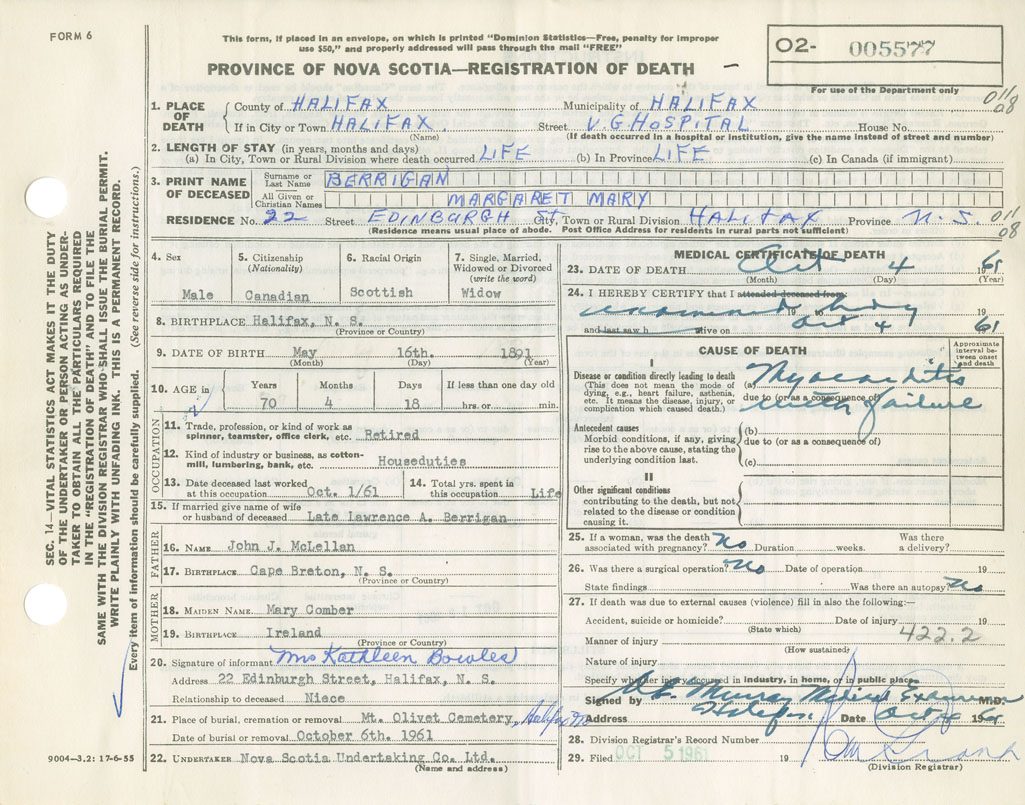 FORM 6
This form, if placed in an envelope, on which is printed "Dominion Statistics—Free, penalty for improper
use $50," and properly addressed will pass through the mail "FREE"
PROVINCE OF NOVA SCOTIA—REGISTRATION OF DEATH
O2- 005577
For use of the Department only
011
08
1. PLACE OF DEATH County of HALIFAX Municipality of HALIFAX
If in City or Town HALIFAX. Street V.G. HOSPITAL House No.
(Name) (If death occurred in a hospital or institution, give the name instead of street and number)
2. LENGTH OF STAY (in years, months and days)
(a) In City, Town or Rural Division where death occurred LIFE (b) In Province LIFE (c) In Canada (if immigrant)
3. PRINT NAME OF DECEASED Surname or Last Name BERRIGAN
All Given or Christian Names MARGARET MARY
RESIDENCE No. 22 Street EDINBURGH St. City, Town or Rural Division HALIFAX Province N.S.
011
08
(Residence means usual place of abode. Post Office Address for residents in rural parts not sufficient)
4. Sex
Male
5. Citizenship
(Nationality)
Canadian
6. Racial Origin
Scottish
7. Single, Married,
Widowed or Divorced
(write the word)
Widow
8. BIRTHPLACE Halifax, N. S.
(Province or Country)
9. DATE OF BIRTH May 16th. 1891
(Month) (Day) (Year)
10. AGE in Years Months Days If less than one day old
70 4 18 hrs. or min.
OCCUPATION
11. Trade, profession, or kind of work as
spinner, teamster, office clerk, etc. Retired
12. Kind of industry or business, as cotton-
mill, lumbering, bank, etc. Houseduties
13. Date deceased last worked
at this occupation Oct. 1/61
14. Total yrs. spent in
this occupation Life
15. If married give name of wife
or husband of deceased Late Lawrence A. Berrigan
FATHER
16. NAME John J. McLellan
17. BIRTHPLACE Cape Breton, N. S.
(Province or Country)
MOTHER
18. MAIDEN NAME Mary Comber
19. BIRTHPLACE Ireland
(Province or Country)
20. Signature of informant Mrs Kathleen Bowles
Address 22 Edinburgh Street, Halifax, N. S.
Relationship to deceased Niece
21. Place of burial, cremation or removal Mt. Olivet Cemetery, Halifax
Date of burial or removal October 6th. 1961
22. UNDERTAKER Nova Scotia Undertaking Co. Ltd.
(Name and address)
MEDICAL CERTIFICATE OF DEATH
23. DATE OF DEATH Oct 4 1961
(Month) (Day) (Year)
24. I HEREBY CERTIFY that I attended deceased from
examined body 19 to 19
and last saw h alive on Oct 4 61
CAUSE OF DEATH
Approximate
interval be-
tween onset
and death
I
Disease or condition directly leading to death
(This does not mean the mode of
dying, e.g., heart failure, asthenia,
etc. It means the disease, injury, or
complication which caused death.)
(a) Myocarditis
due to (or as a consequence of)
with failure
Antecedent causes
Morbid conditions, if any, giving
rise to the above cause, stating the
underlying condition last.
(b)
due to (or as a consequence of)
(c)
II
Other significant conditions
contributing to the death, but not
related to the disease or condition
causing it.
25. If a woman, was the death
associated with pregnancy? No Duration weeks. Was there
a delivery?
26. Was there a surgical operation? No Date of operation 19
State findings Was there an autopsy? No
27. If death was due to external causes (violence) fill in also the following:—
Accident, suicide or homicide? Date of injury 19
(State which)
422.2
Manner of injury
(How sustained)
Nature of injury
Specify whether injury occurred in industry, in home, or in public place
Signed by Murray Medical Examiner M.D.
Address Halifax Date Oct 4 1961
28. Division Registrar's Record Number
29. Filed OCT 5 1961 19
(Division Registrar)
SEC. 14—VITAL STATISTICS ACT MAKES IT THE DUTY
OF THE UNDERTAKER OR PERSON ACTING AS UNDER-
TAKER TO OBTAIN ALL THE PARTICULARS REQUIRED
IN THE "REGISTRATION OF DEATH" AND TO FILE THE
SAME WITH THE DIVISION REGISTRAR WHO SHALL ISSUE THE BURIAL PERMIT.
WRITE PLAINLY WITH UNFADING INK. THIS IS A PERMANENT RECORD.
Every item of information should be carefully supplied. (See reverse side for instructions.)
9004—3,2: 17-6-55